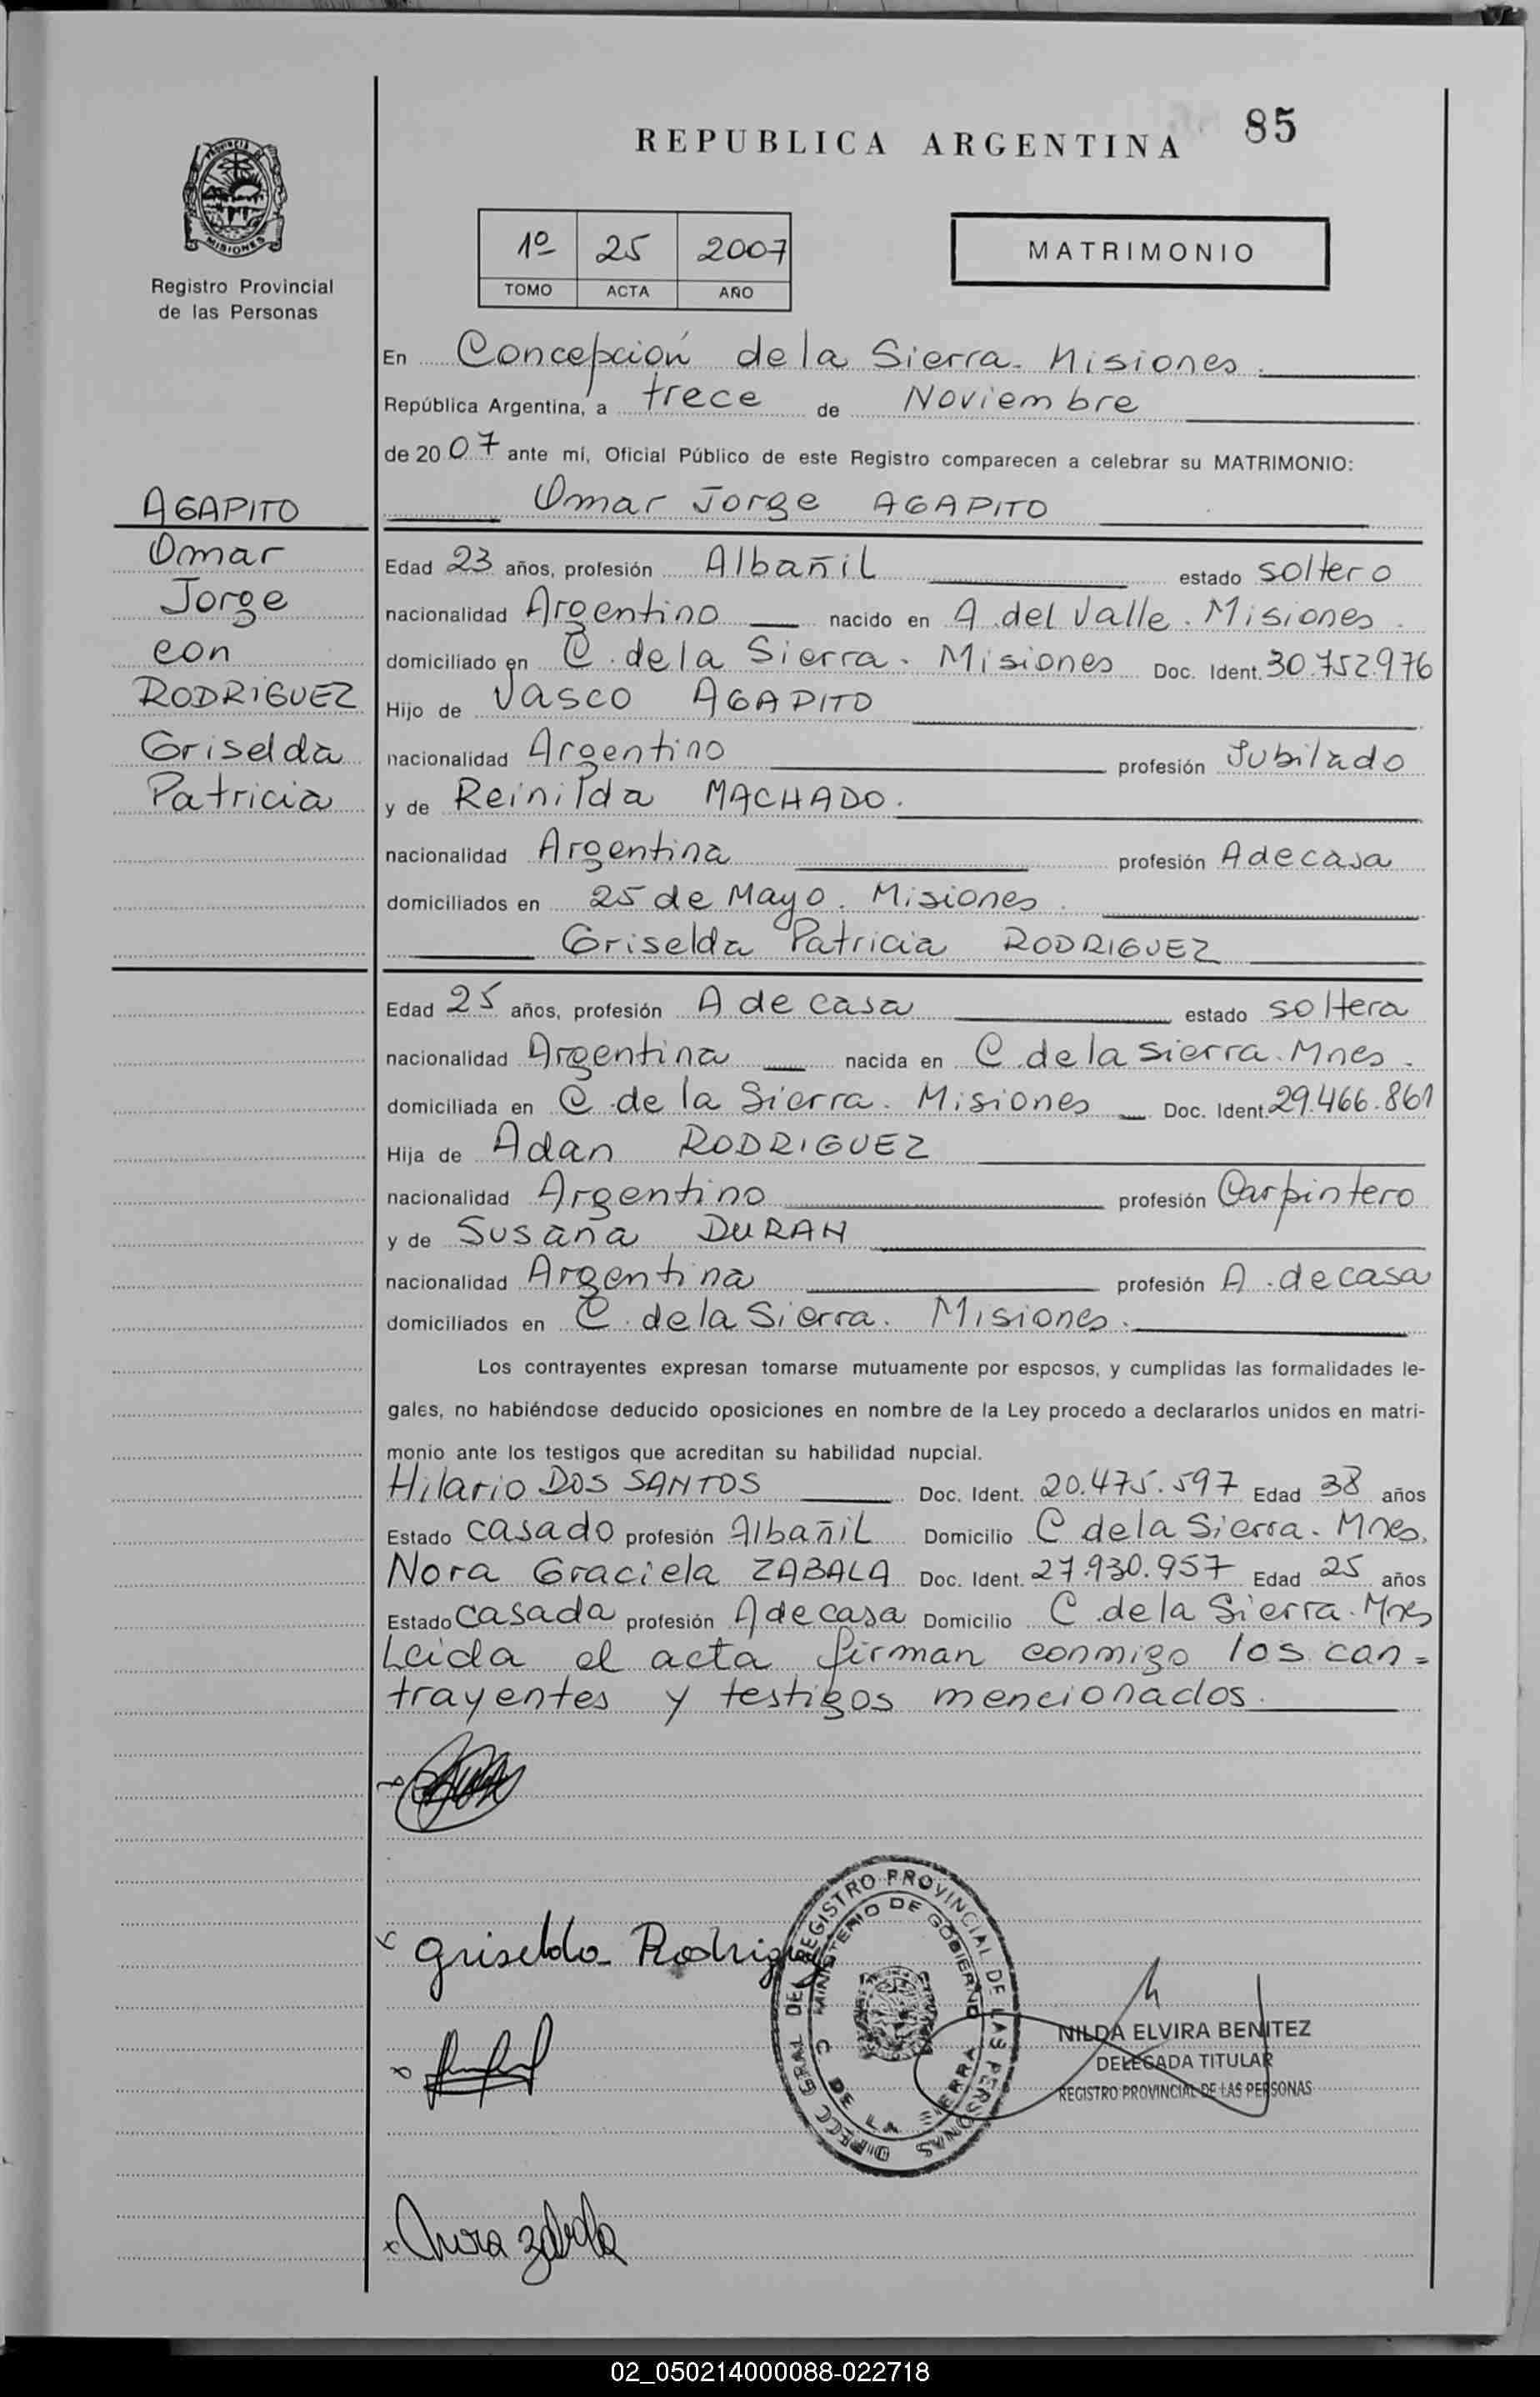 85
REPUBLICA ARGENTINA
PROVINCIA DE
MISIONES
Registro Provincial
de las Personas
1º 25 2007
TOMO ACTA AÑO
MATRIMONIO
En Concepción de la Sierra. Misiones.
República Argentina, a trece de Noviembre
de 2007 ante mí, Oficial Público de este Registro comparecen a celebrar su MATRIMONIO:
AGAPITO
Omar
Jorge
con
RODRIGUEZ
Griselda
Patricia
Omar Jorge AGAPITO
Edad 23 años, profesión Albañil estado soltero
nacionalidad Argentino nacido en A. del Valle. Misiones.
domiciliado en C. de la Sierra. Misiones Doc. Ident. 30.752.976
Hijo de Vasco AGAPITO
nacionalidad Argentino profesión Jubilado
y de Reinilda MACHADO.
nacionalidad Argentina profesión A de casa
domiciliados en 25 de Mayo. Misiones.
Griselda Patricia RODRIGUEZ
Edad 25 años, profesión A de casa estado soltera
nacionalidad Argentina nacida en C. de la Sierra. Mnes.
domiciliada en C. de la Sierra. Misiones Doc. Ident. 29.466.861
Hija de Adan RODRIGUEZ
nacionalidad Argentino profesión Carpintero
y de Susana DURAN
nacionalidad Argentina profesión A. de casa
domiciliados en C. de la Sierra. Misiones.
Los contrayentes expresan tomarse mutuamente por esposos, y cumplidas las formalidades le-
gales, no habiéndose deducido oposiciones en nombre de la Ley procedo a declararlos unidos en matri-
monio ante los testigos que acreditan su habilidad nupcial.
Hilario DOS SANTOS Doc. Ident. 20.475.597 Edad 38 años
Estado casado profesión Albañil Domicilio C de la Sierra. Mnes.
Nora Graciela ZABALA Doc. Ident. 27.930.957 Edad 25 años
Estado casada profesión A de casa Domicilio C. de la Sierra. Mnes
Leida el acta firman conmigo los con=
trayentes y testigos mencionados.
Griselda Rodriguez
DIRECC GRAL DEL REGISTRO PROVINCIAL DE LAS PERSONAS
MINISTERIO DE GOBIERNO
C DE LA SIERRA
NILDA ELVIRA BENITEZ
DELEGADA TITULAR
REGISTRO PROVINCIAL DE LAS PERSONAS
Nora Zabala
02_050214000088-022718